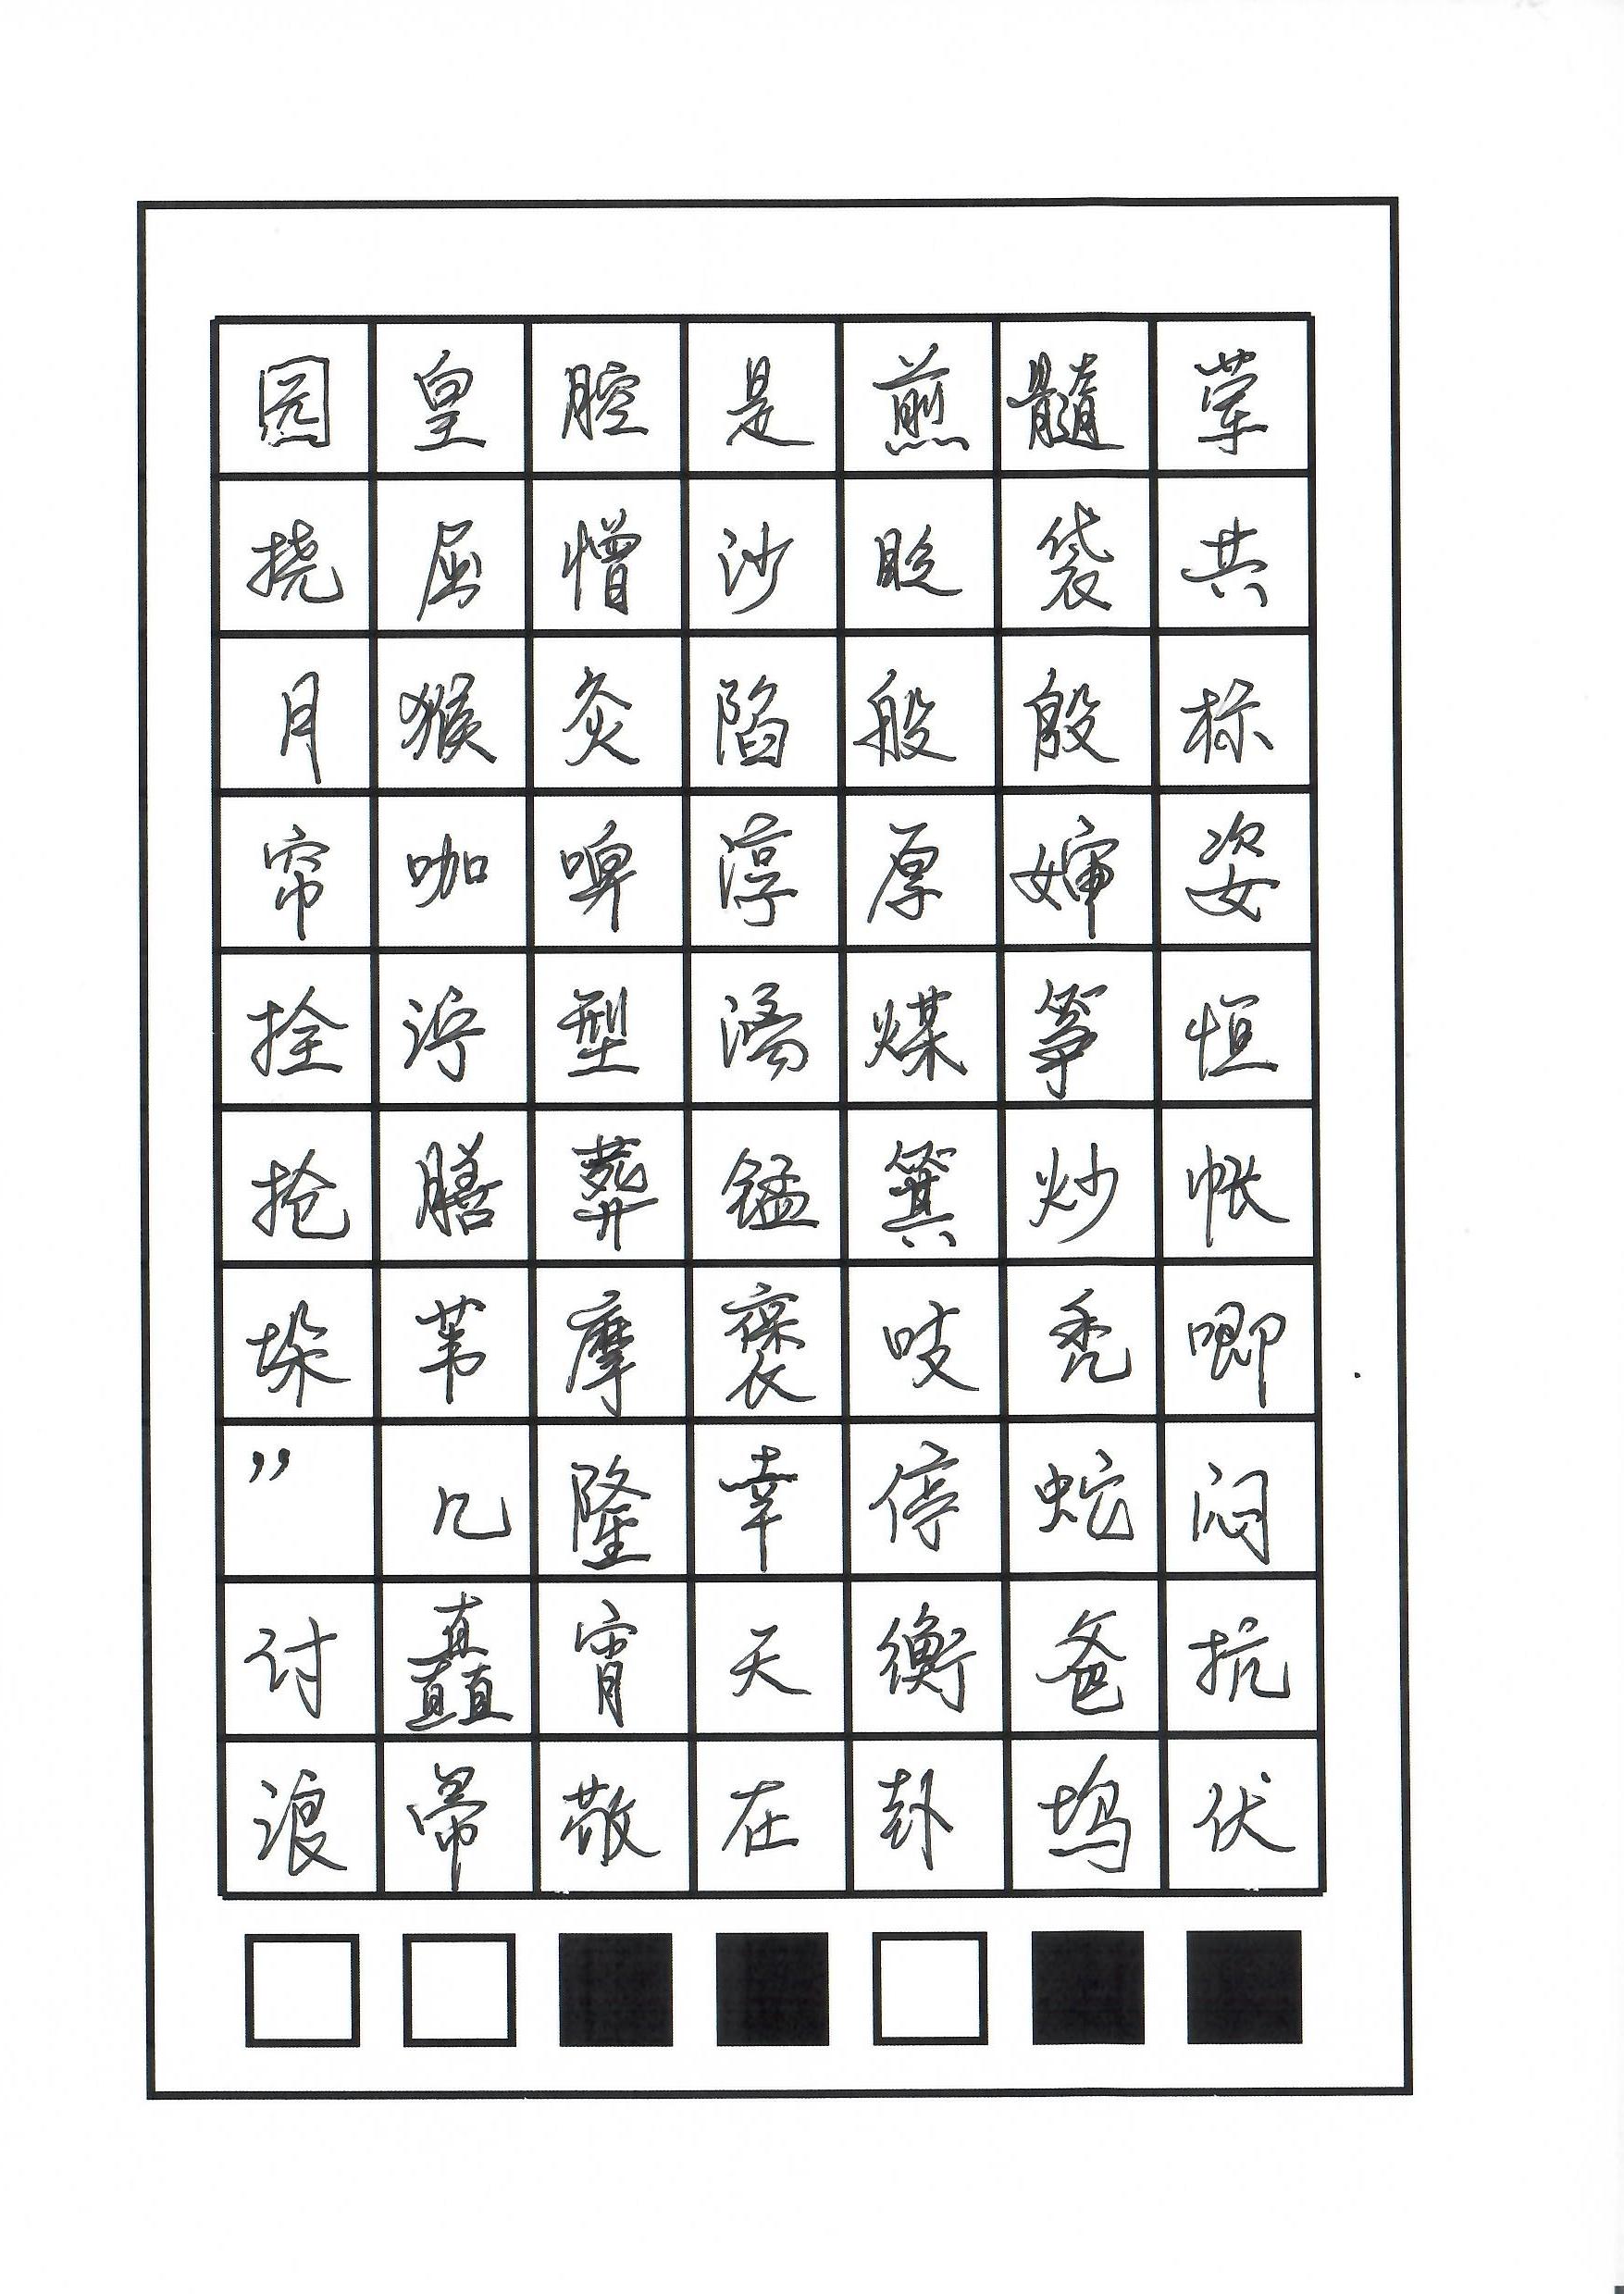 园皇腔是煎髓荤
挠屈憎沙眨袋共
月猴灸陷般殷标
帘咖啤淳厚婶姿
拴泞型荡煤筝恒
抢膳葬锰箕炒帐
垛苇摩褒吱秃唧
”几隆幸停蛇闷
讨矗宵天衡爸抗
浪帚敬在卦坞伏